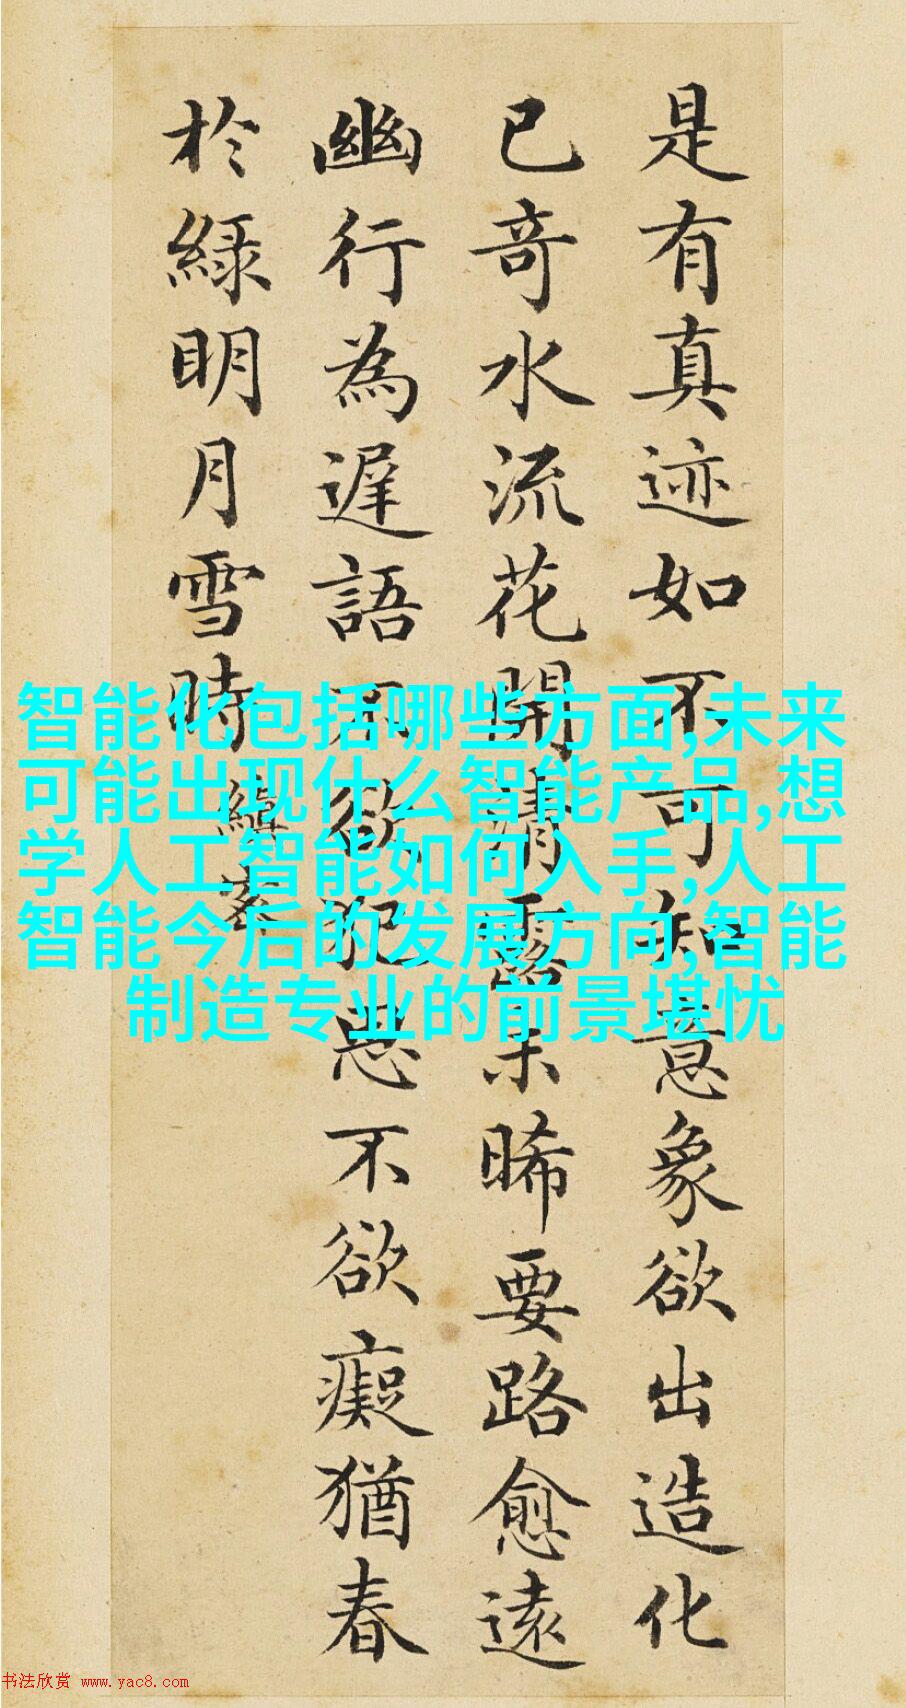 是有真迹如不可知意象欲出造化
已奇水流花開清露未晞要路愈遠
幽行為遲語不欲犯思不欲癡猶春
於綠明月雪時
智能化包括哪些方面,未来
可能出现什么智能产品,想
学人工智能如何入手,人工
智能今后的发展方向,智能
制造专业的前景堪忧
书法欣赏 www.yac8.com